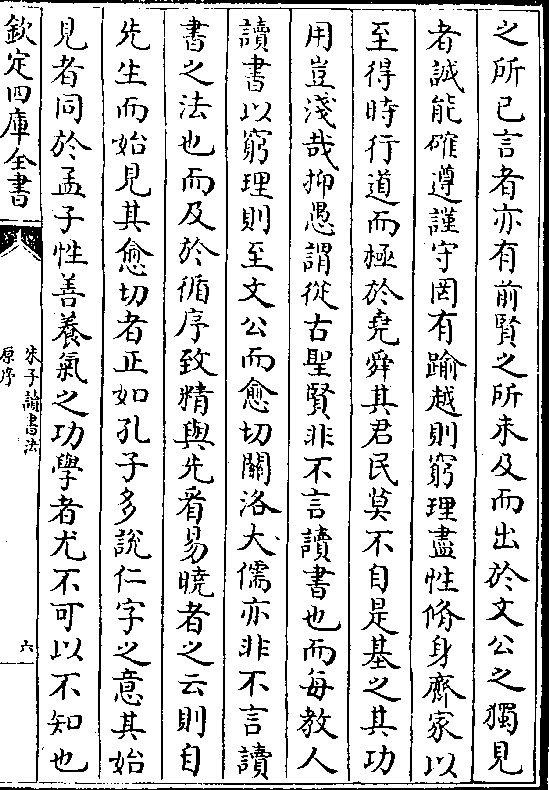 之所已言者亦有前賢之所未及而出於文公之獨見
者誠能確遵謹守罔有踰越則窮理盡性脩身齊家以
至得時行道而極於堯舜其君民莫不自是基之其功
用豈淺哉抑愚謂從古聖賢非不言讀書也而每教人
讀書以窮理則至文公而愈切關洛大儒亦非不言讀
書之法也而及於循序致精與先看易曉者之云則自
先生而始見其愈切者正如孔子多說仁字之意其始
見者同於孟子性善養氣之功學者尤不可以不知也
欽定四庫全書
朱子讀書法
原序
六